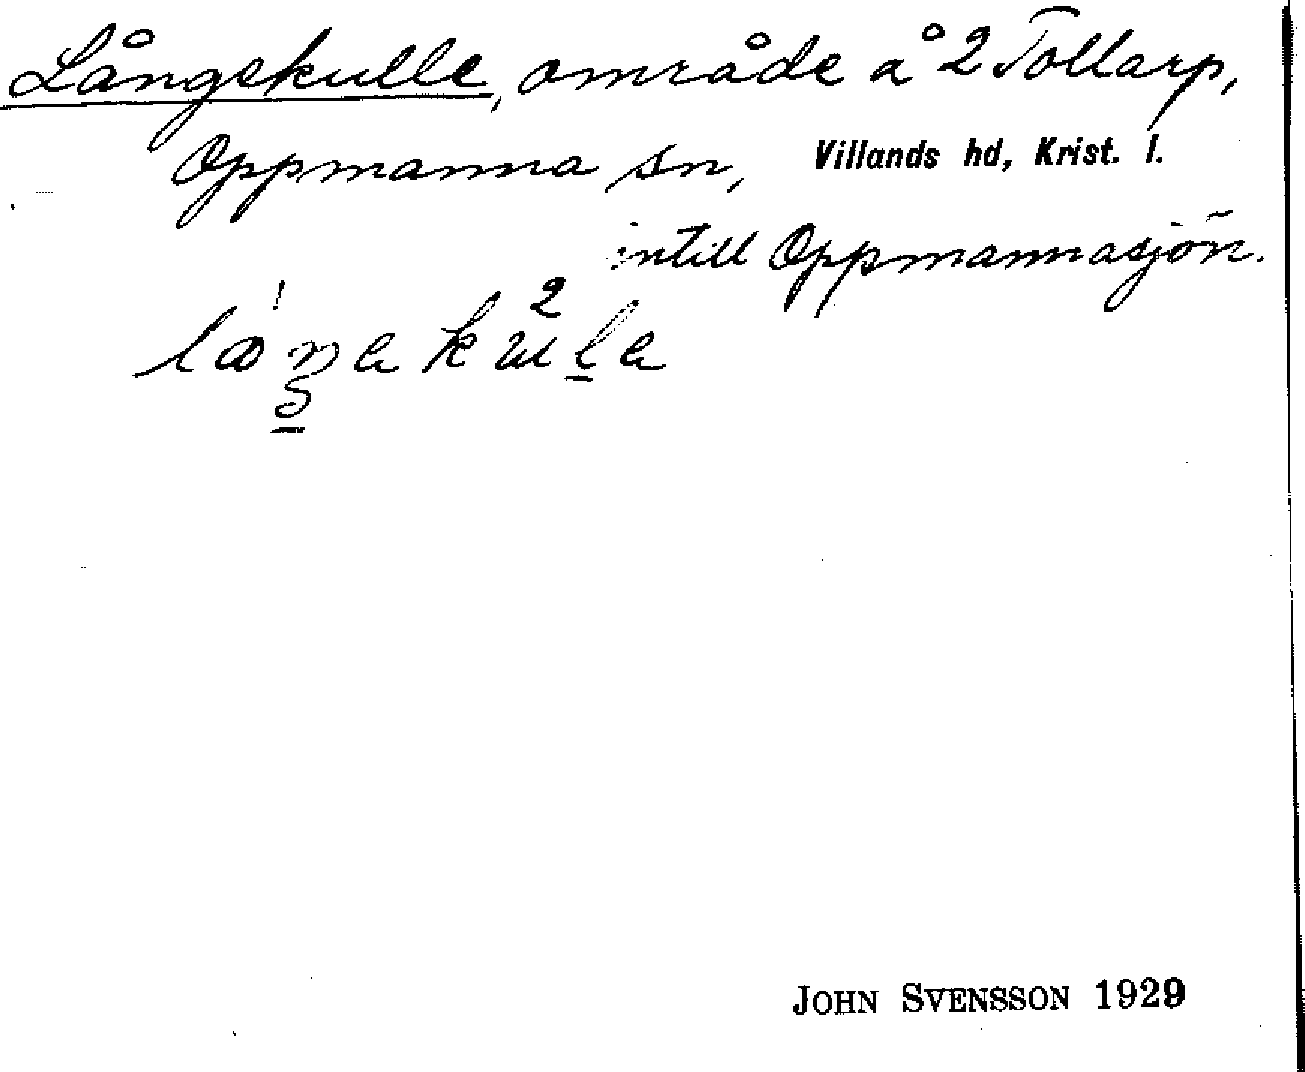 Långekulle, område å 2 Tollarp,
Oppmanna sn, Villands hd, Krist. l.
intill Oppmannasjön.
JOHN SVENSSON 1929